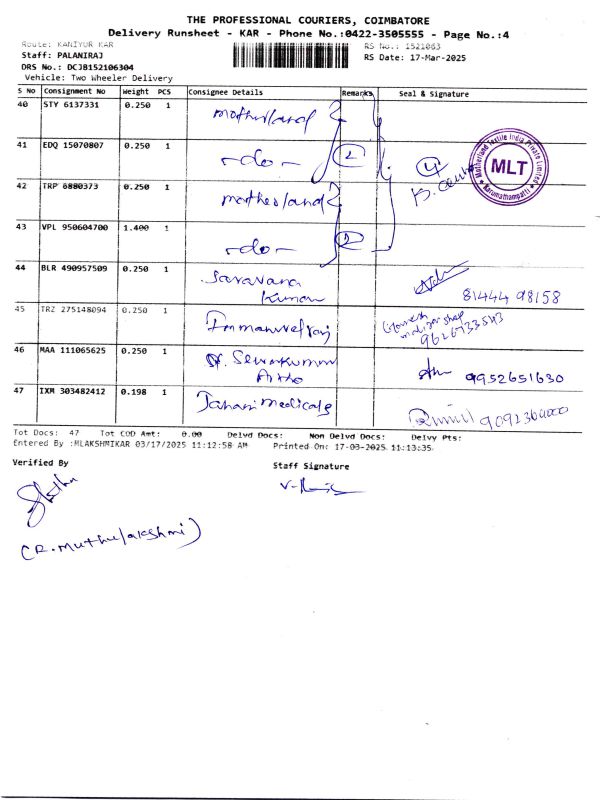 THE PROFESSIONAL COURIERS, COIMBATORE
Delivery Runsheet - KAR - Phone No.:0422-3505555 - Page No.:4
Route: KANIYUR KAR RS No.: 1521063
Staff: PALANIRAJ RS Date: 17-Mar-2025
DRS No.: DCJ8152106304
Vehicle: Two Wheeler Delivery
S No Consignment No Weight PCS Consignee Details Remarks Seal & Signature
40 STY 6137331 0.250 1 motherland
41 EDQ 15070807 0.250 1 -do- 2 4
Motherland Textile India Private Limited
MLT
Karumathampatti
42 TRP 6880373 0.250 1 motherland
43 VPL 950604700 1.400 1 -do- 2
44 BLR 490957509 0.250 1 Saravana
Kumar 81444 98158
45 TRZ 275148094 0.250 1 Immanuvelraj 9626733543
46 MAA 111065625 0.250 1 9952651630
47 IXM 303482412 0.198 1 medicals
Tot Docs: 47 Tot COD Amt: 0.00 Delvd Docs: Non Delvd Docs: Delvy Pts:
Entered By :MLAKSHMIKAR 03/17/2025 11:12:58 AM Printed On: 17-03-2025 11:13:35
Verified By Staff Signature
(R. Muthulakshmi)